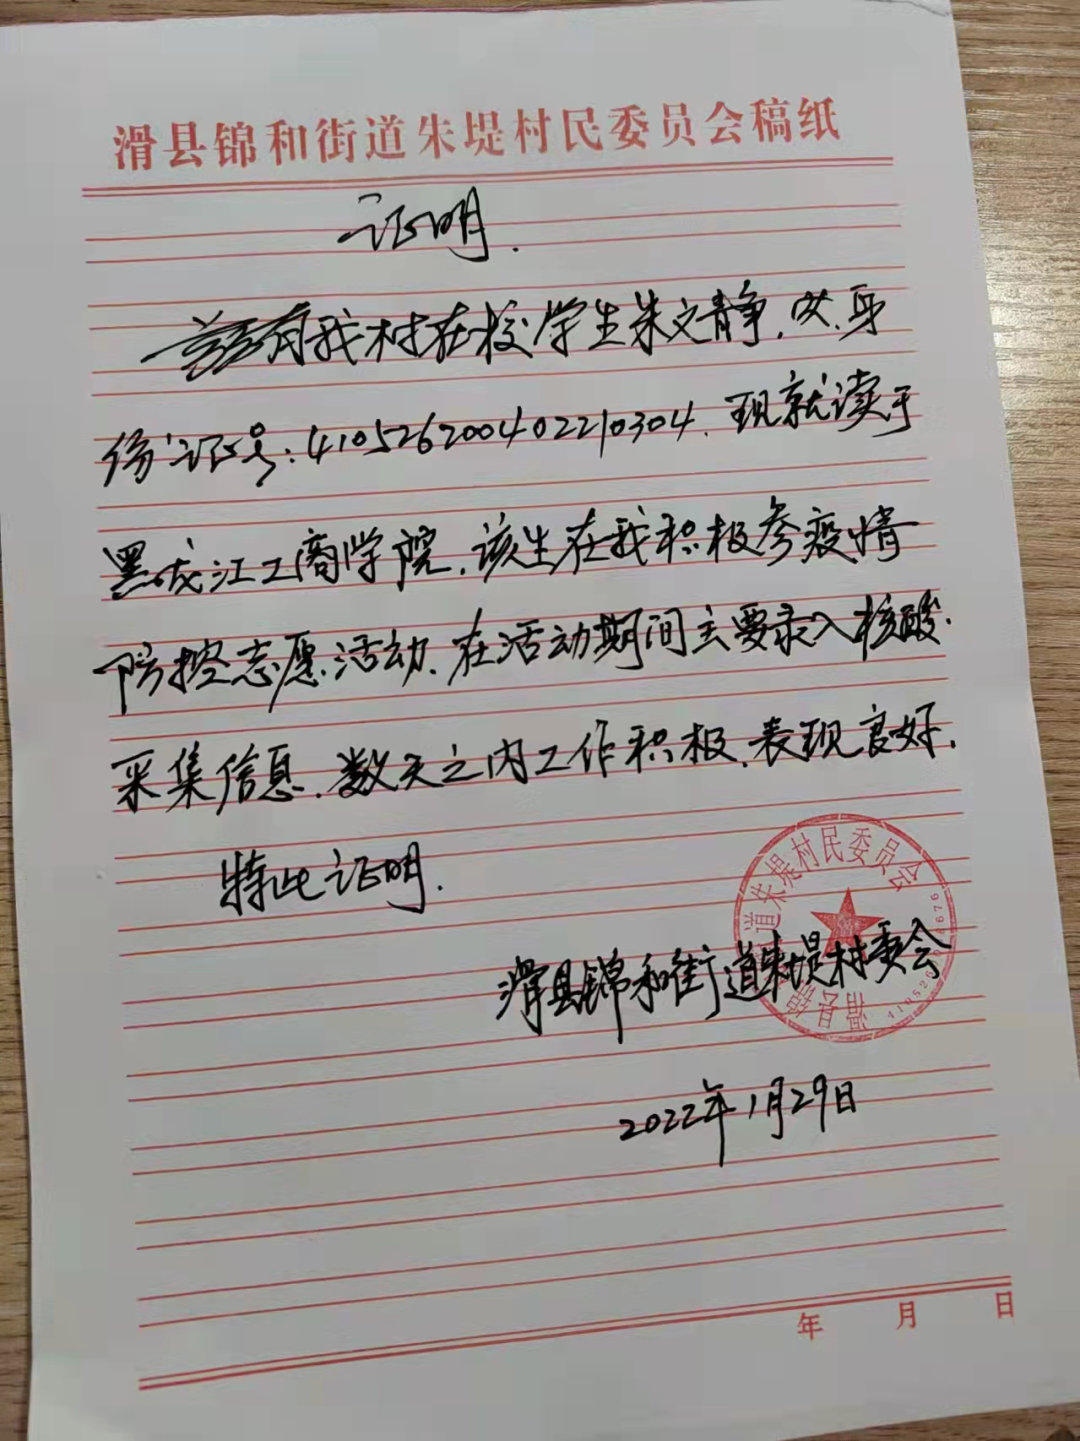 滑县锦和街道朱堤村民委员会稿纸
证明.
兹有我村在校学生朱文静.女.身
份证号:410526200402210304.现就读于
黑龙江工商学院.该生在我积极参疫情
防控志愿活动.在活动期间主要录入核酸.
采集信息.数天之内工作积极.表现良好.
特此证明.
道朱堤村民委员会
滑县锦和街道朱堤村委会
滑县锦
2022年1月29日
年 月 日